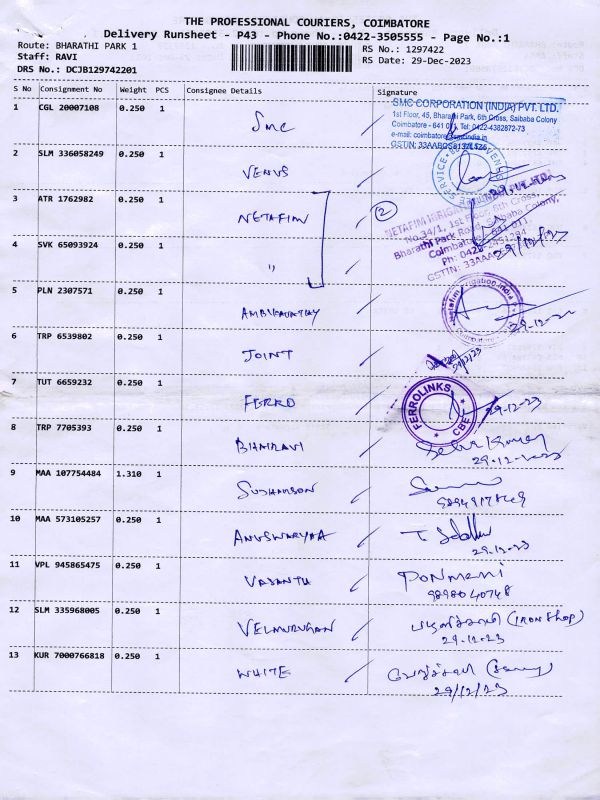 THE PROFESSIONAL COURIERS, COIMBATORE
Delivery Runsheet - P43 - Phone No.:0422-3505555 - Page No.:1
Route: BHARATHI PARK 1 RS No.: 1297422
Staff: RAVI RS Date: 29-Dec-2023
DRS No.: DCJB129742201
S No Consignment No Weight PCS Consignee Details Signature
1 CGL 20007108 0.250 1 SMC
SMC CORPORATION (INDIA) PVT. LTD.
1st Floor, 45, Bharathi Park, 6th Cross, Saibaba Colony
Coimbatore - 641 011. Tel: 0422-4382872-73
2 SLM 336058249 0.250 1 VENUS
3 ATR 1762982 0.250 1 NETAFIM 2
No.34/1, 1st Floor, 6th Cross,
Bharathi Park Road, Saibaba Colony,
Coimbatore - 641 011.
4 SVK 65093924 0.250 1 "
29/12/23
5 PLN 2307571 0.250 1
6 TRP 6539802 0.250 1 JOINT
7 TUT 6659232 0.250 1 FERRO
FERROLINKS CBE 29-12-23
8 TRP 7705393 0.250 1 BHAIRAVI
29-12-2023
9 MAA 107754484 1.310 1
10 MAA 573105257 0.250 1
29-12-23
11 VPL 945865475 0.250 1 VASANTH PONMANI
9898040748
12 SLM 335968005 0.250 1 VELMURUGAN (IRON Shop)
29-12-23
13 KUR 7000766818 0.250 1 WHITE
29/12/23